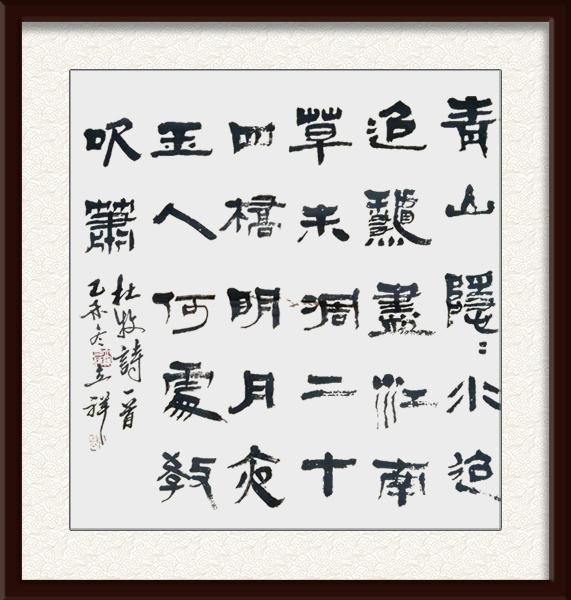 青山隱〻水迢
迢龝盡江南
草未凋二十
四橋明月夜
玉人何處教
吹蕭
杜牧詩一首
乙亥冬立祥